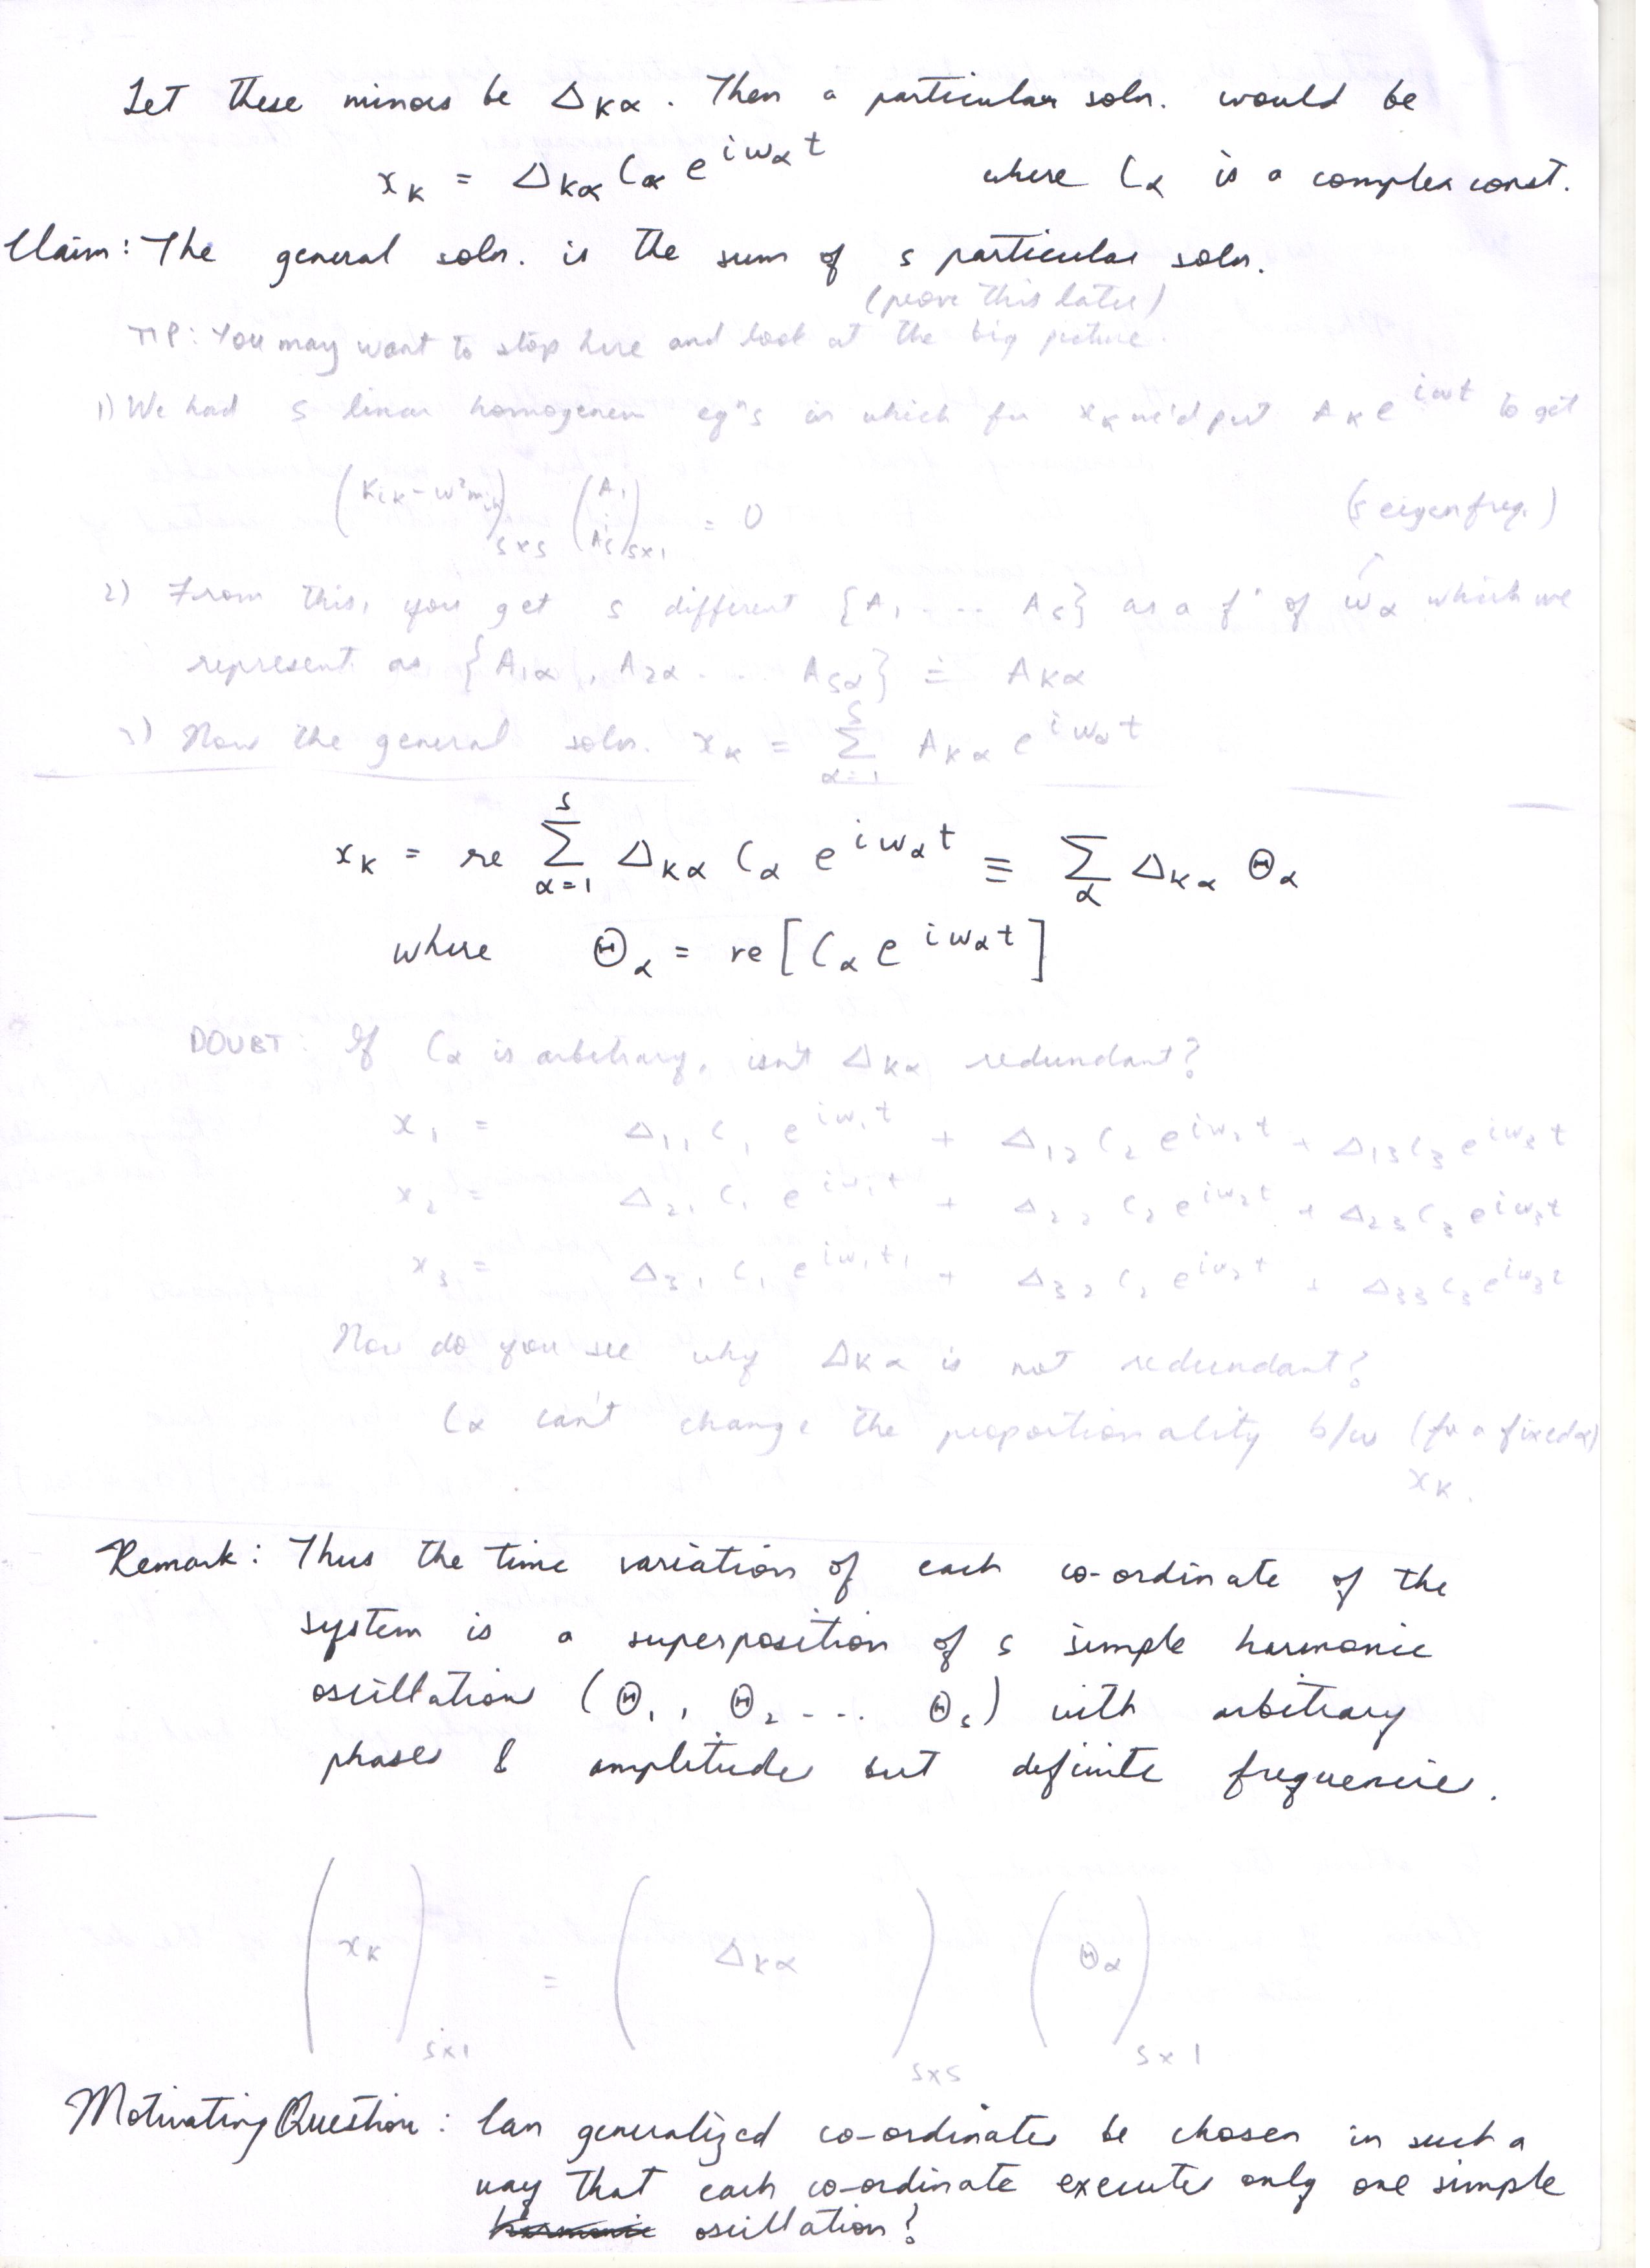 Let these minors be Δkα. Then a particular soln. would be
xk = Δkα Cα e^{iωαt} where Cα is a complex const.
Claim: The general soln. is the sum of s particular soln.
(prove this later)
TIP: You may want to stop here and look at the big picture.
1) We had s linear homogenem eqⁿs in which for xk we'd put Ak e^{iωt} to get
(Kik - ω²mik)s×s (A1 ⋮ As)s×1 = 0 (s eigenfreq.)
2) From this, you get s different {A1 ---- As} as a fⁿ of ωα which we
represent as {A1α, A2α . . . Asα} ≡ Akα
3) Now the general soln. xk = Σ_{α=1}^{s} Akα e^{iωαt}
xk = re Σ_{α=1}^{s} Δkα Cα e^{iωαt} ≡ Σ_α Δkα Θα
where Θα = re[Cα e^{iωαt}]
DOUBT: If Cα is arbitrary, isn't Δkα redundant?
x1 = Δ11 C1 e^{iω1t} + Δ12 C2 e^{iω2t} + Δ13 C3 e^{iω3t}
x2 = Δ21 C1 e^{iω1t} + Δ22 C2 e^{iω2t} + Δ23 C3 e^{iω3t}
x3 = Δ31 C1 e^{iω1t} + Δ32 C2 e^{iω2t} + Δ33 C3 e^{iω3t}
Now do you see why Δkα is not redundant?
Cα can't change the proportionality b/w (for a fixed α)
xk.
Remark: Thus the time variation of each co-ordinate of the
system is a superposition of s simple harmonic
oscillation (Θ1, Θ2 --.. Θs) with arbitrary
phases & amplitudes but definite frequencies.
(xk)s×1 = (Δkα)s×s (Θα)s×1
Motivating Question: Can generalized co-ordinates be chosen in such a
way that each co-ordinate executes only one simple
harmonic oscillation?